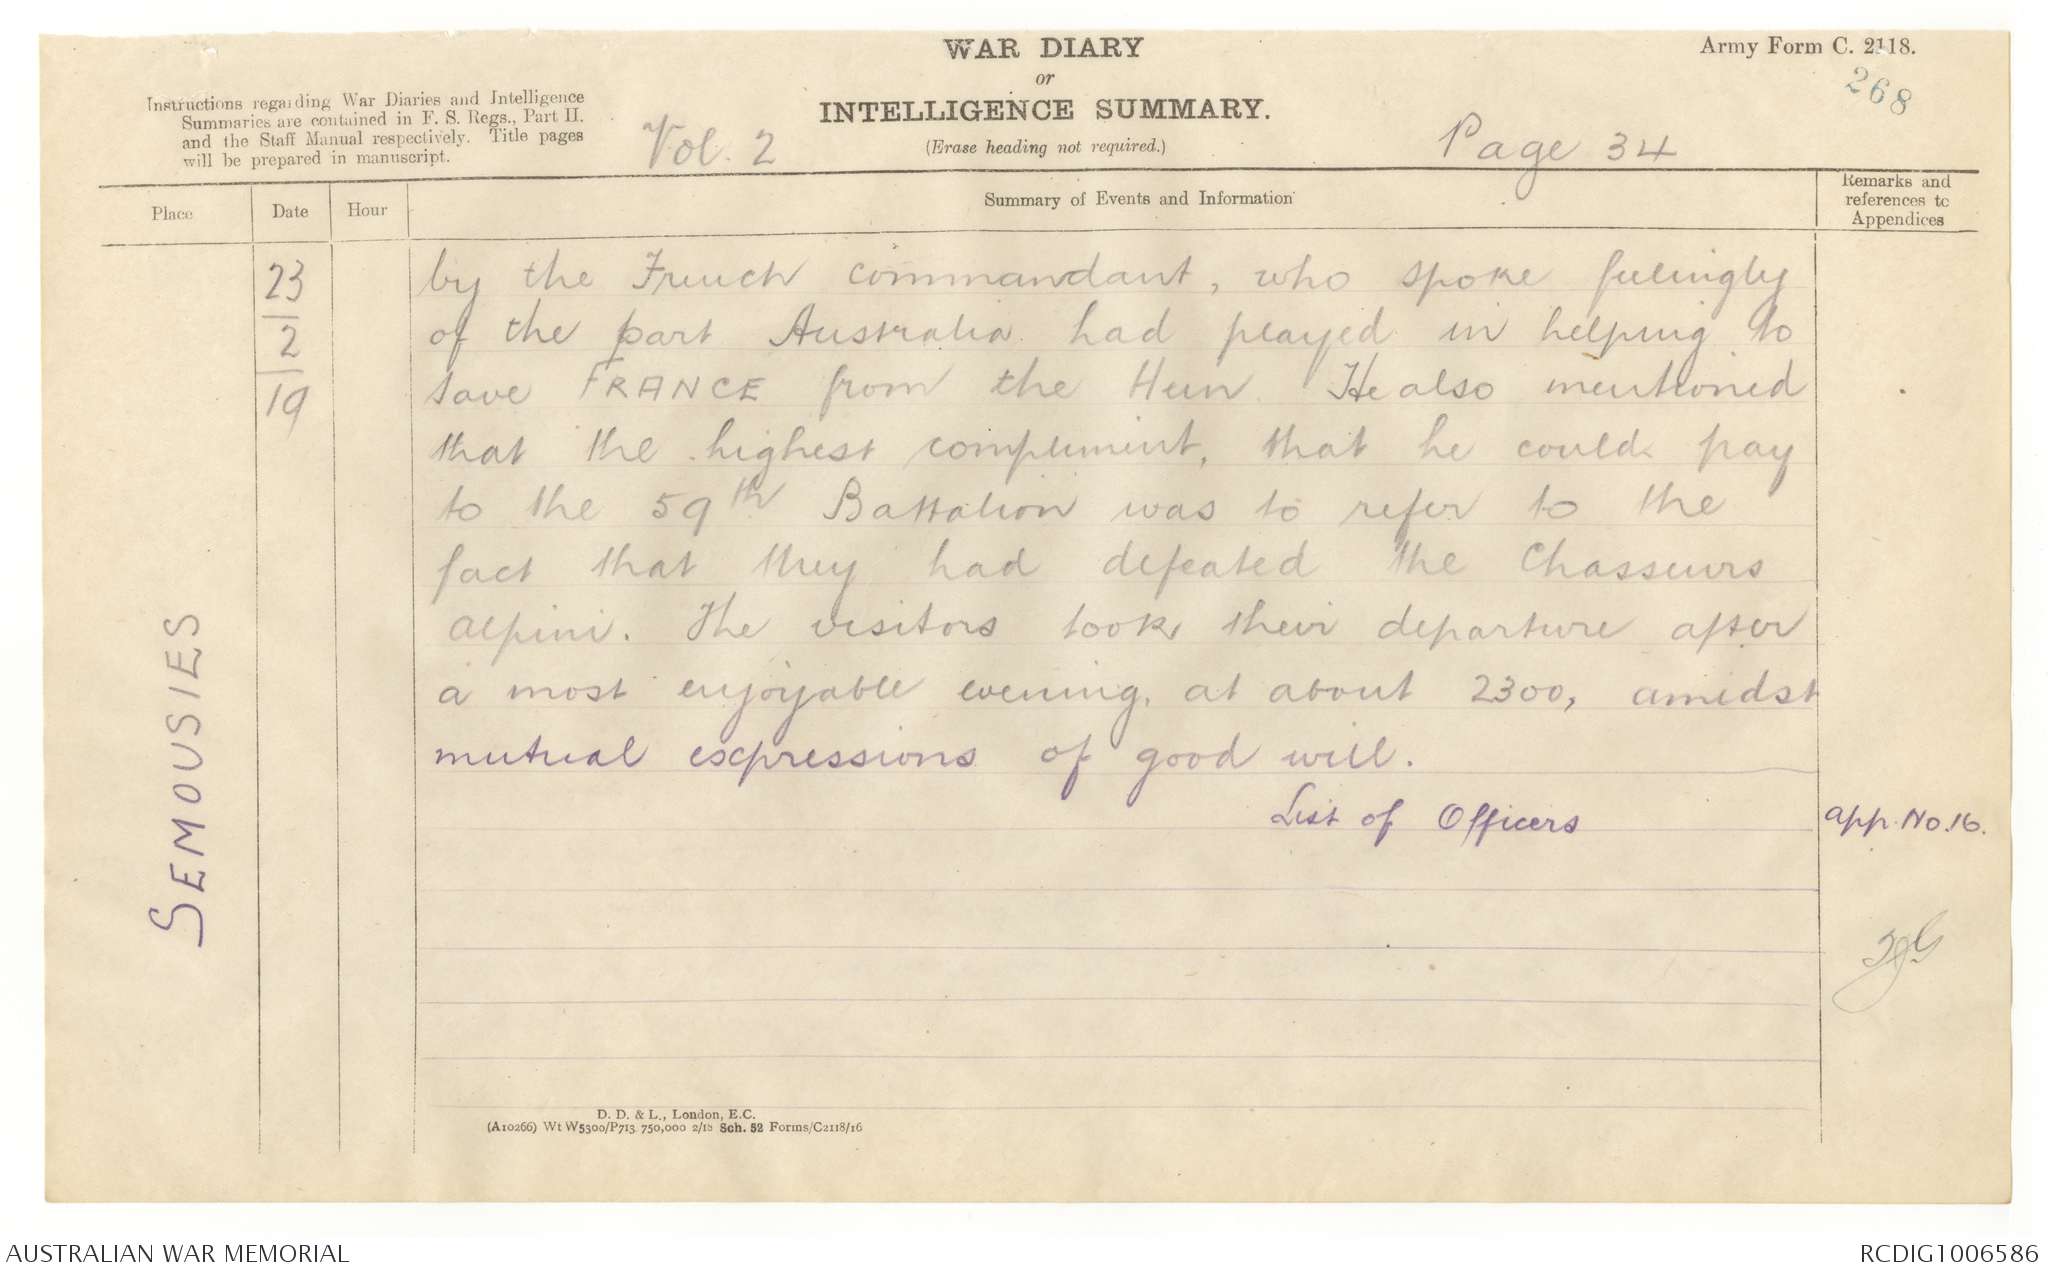 WAR DIARY
or
INTELLIGENCE SUMMARY.
(Erase heading not required.)
Army Form C. 2118.
268
Instructions regarding War Diaries and Intelligence
Summaries are contained in F. S. Regs., Part II.
and the Staff Manual respectively. Title pages
will be prepared in manuscript.
Vol. 2
Page 34
Place
Date
Hour
Summary of Events and Information
Remarks and
references to
Appendices
SEMOUSIES
23
2
19
by the French commandant, who spoke feelingly
of the part Australia had played in helping to
save FRANCE from the Hun. He also mentioned
that the highest compliment, that he could pay
to the 59th Battalion was to refer to the
fact that they had defeated the Chasseurs
Alpini. The visitors took their departure after
a most enjoyable evening, at about 2300, amidst
mutual expressions of good will.
List of Officers
App. No. 16.
D. D. & L., London, E.C.
(A10266) Wt W5300/P713 750,000 2/18 Sch. 52 Forms/C2118/16
AUSTRALIAN WAR MEMORIAL
RCDIG1006586